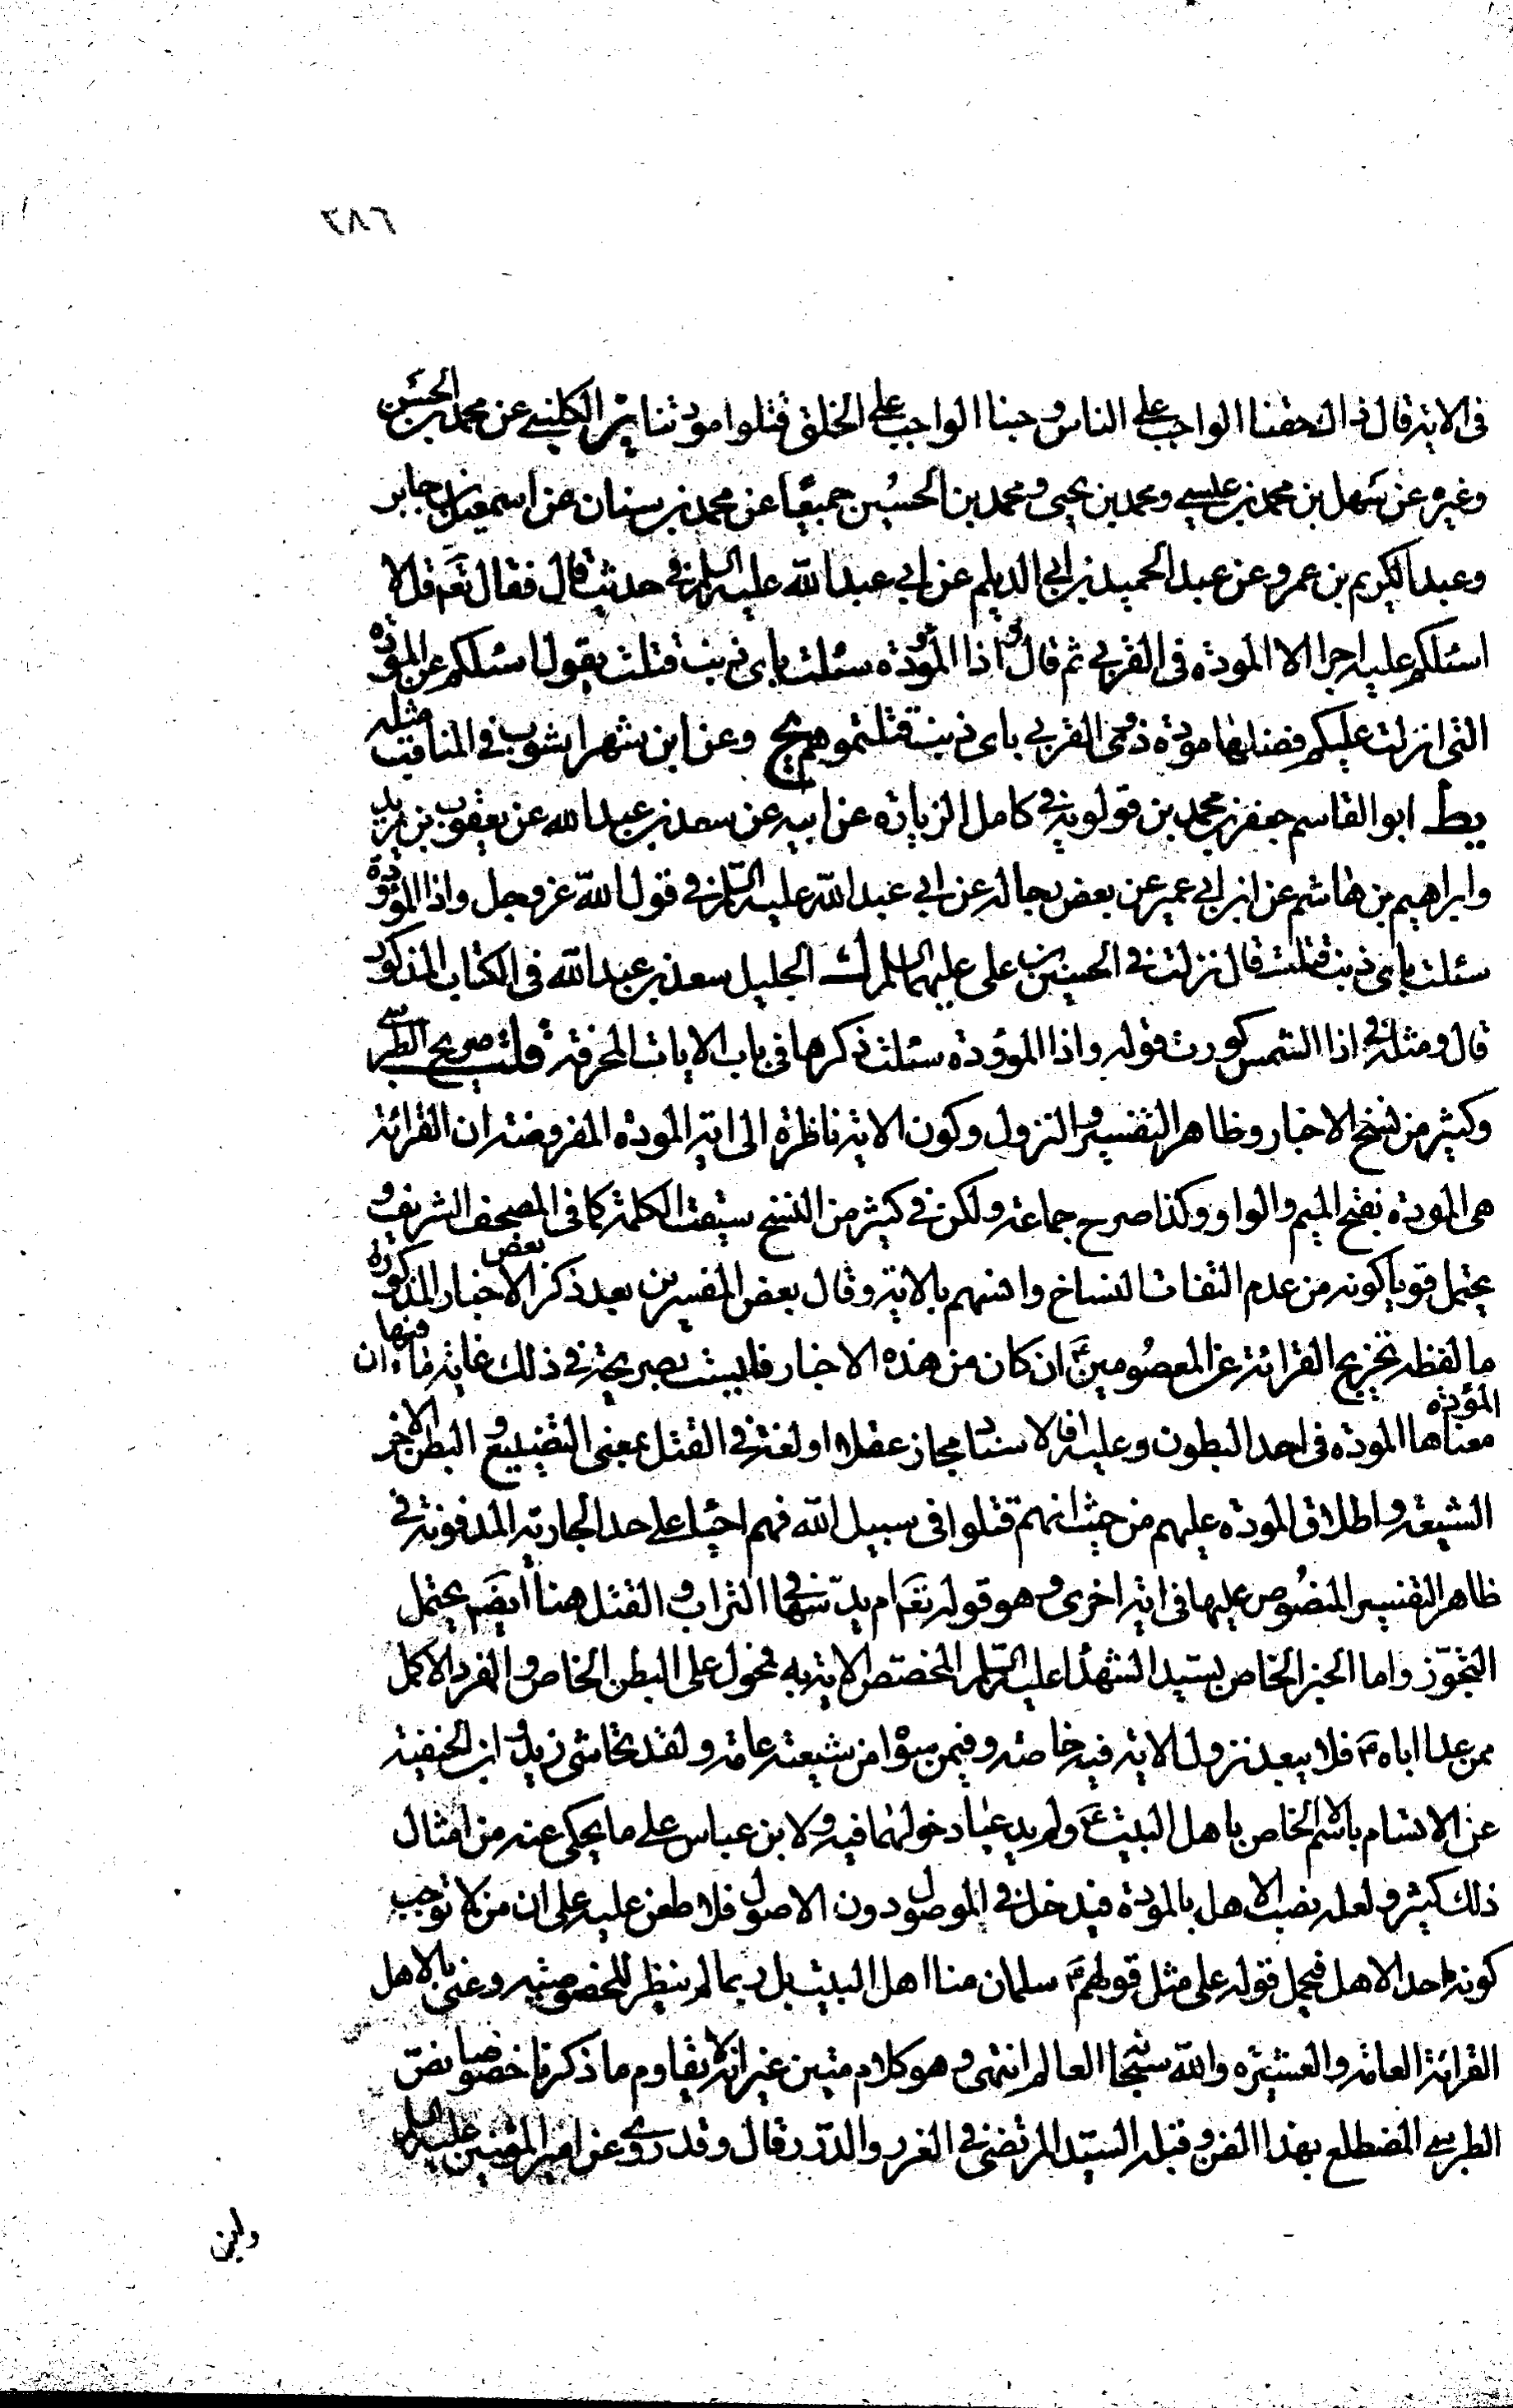 ٦٨٢
فى الاية قال ذلك حقنا الواجب على الناس وحبنا الواجب على الخلق قتلوا مودتنا يز الكليني عن محمد بن الحسن
وغيره عن سهل بن محمد بن عيسى ومحمد بن يحيى ومحمد بن الحسين جميعا عن محمد بن سنان عن اسمعيل بن جابر
وعبد الكريم بن عمرو عن عبد الحميد بن ابى الديلم عن ابي عبد الله عليه السلم فى حديث قال فقال تعم قل لا
اسئلكم عليه اجرا الا المودة فى القربى ثم قال و اذا المودة سئلت باى ذنب قتلت يقول اسئلكم عن المودة
التى انزلت عليكم فضلها مودة ذوى القربى باى ذنب قتلتموهم يح وعن ابن شهراشوب فى المناقب مثله
يط ابو القاسم جعفر بن محمد بن قولويه فى كامل الزيارة عن ابيه عن سعد بن عبد الله عن يعقوب بن يزيد
وابراهيم بن هاشم عن ابن ابي عمير عن بعض رجاله عن ابي عبد الله عليه السلم فى قول الله عز وجل واذا المؤودة
سئلت باى ذنب قتلت قال نزلت فى الحسين بن على عليهما السلم ك الجليل سعد بن عبد الله فى الكتاب المذكور
قال ومثله فى اذا الشمس كورت قوله واذا الموؤدة سئلت ذكرها فى باب الايات المحرفة قلت صريح الطبرسى
وكثير من نسخ الاخبار وظاهر التفسير والنزول وكون الاية ناظرة الى اية المودة المفروضة ان القرائة
هى المودة بفتح الميم والواو وكذا صرح جماعة ولكن فى كثير من النسخ ستقت الكلمة كما فى المصحف الشريف و
يحتمل قويا كونه من عدم التفات النساخ وانسهم بالاية وقال بعض المفسرين بعد ذكر بعض الاخبار المذكورة
ما لفظه تخريج القرائة عن المعصومين ان كان من هذه الاخبار فليست بصريحة فى ذلك غاية ما فيها ان
المؤدة معناها المودة فى احد البطون وعليه فالاسناد مجاز عقلا او لغة فى القتل بمعنى التضييع و البطن الاخر
الشيعة واطلاق المودة عليهم من حيث انهم قتلوا فى سبيل الله فهم احياء على حد الجارية المدفونة فى
ظاهر التفسير المنصوص عليها فى اية اخرى وهو قوله تعم ام يدسه فى التراب و القتل هنا ايضم يحتمل
التجوز واما الخبر الخاص بسيد الشهدا عليه السلم المختص الاية به فمحول على البطن الخاص و الفرد الاكمل
ممن عدا اباه فلا يبعد نزول الاية فيه خاصة وفيمن سوا من شيعته عامة ولقد تحاشى زيد و ابن الحنفية
عن الاتسام بالاسم الخاص باهل البيت ع ولم يدعيا دخولهما فيه ولابن عباس على ما يحكى عنه من امثال
ذلك كثير و لعله نصب الاهل بالمودة فيدخل فى الموصول دون الاصول فلا طعن عليه على ان من لا توجب
كونه احد الاهل فيحمل قوله على مثل قولهم سلمان منا اهل البيت بل ربما لم ينظر للخصوصية وعنى بالاهل
القرابة العامة والعشيرة والله سبحانه العالم انتهى وهو كلام متين غير انه لا يقاوم ما ذكرنا خصوصا نص
الطبرسى المضطلع بهذا الفن و قبله السيد المرتضى فى الغرر والدرر قال وقد روى عن امير المؤمنين عليه السلم
وابن